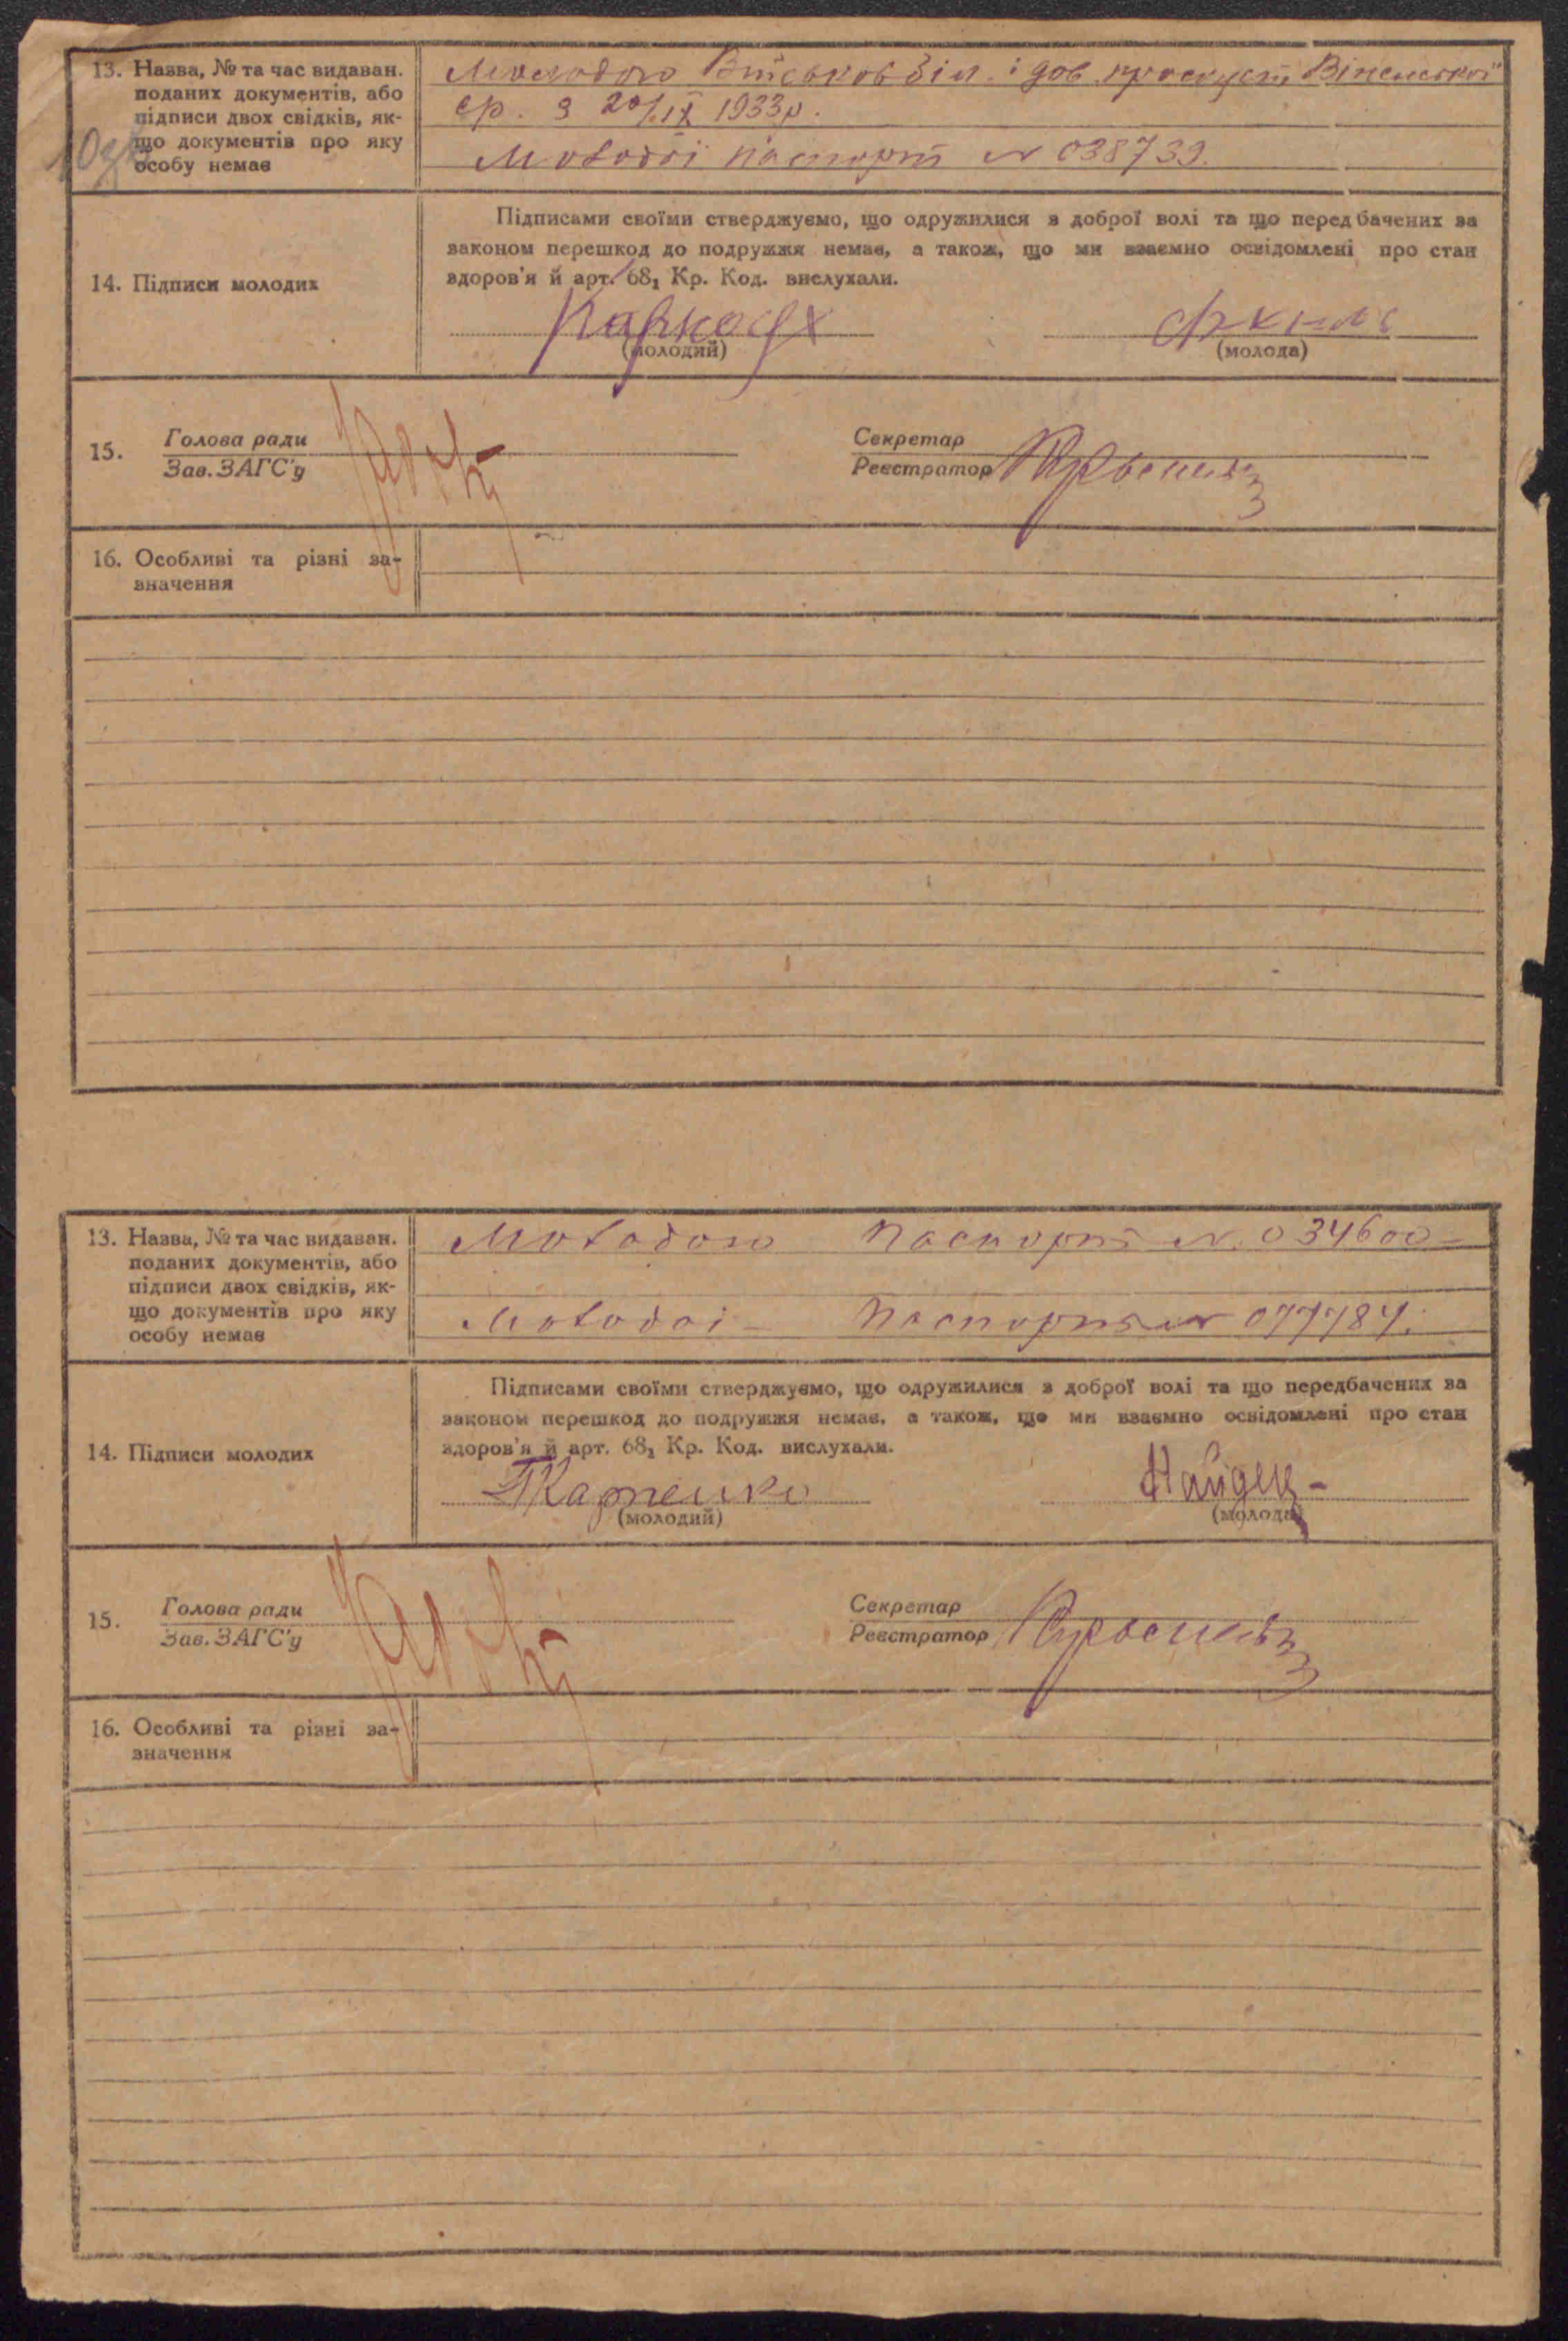 13. Назва, № та час видаван.
поданих документів, або
підписи двох свідків, як-
що документів про яку
особу немає
Молодого Військов біл. і дов.
ср. з 20/IX 1933р.
Молодої паспорт № 038739.
Підписами своїми стверджуємо, що одружилися з доброї волі та що передбачених за
законом перешкод до подружжя немає, а також, що ми взаємно освідомлені про стан
здоров'я й арт. 68₁ Кр. Код. вислухали.
14. Підписи молодих
(молодий)
(молода)
15.
Голова ради
Зав. ЗАГС'у
Секретар
Реєстратор
16. Особливі та різні за-
значення
13. Назва, № та час видаван.
поданих документів, або
підписи двох свідків, як-
що документів про яку
особу немає
Молодого Паспорт № 034600
Молодої - Паспорт № 077784.
Підписами своїми стверджуємо, що одружилися з доброї волі та що передбачених за
законом перешкод до подружжя немає, а також, що ми взаємно освідомлені про стан
здоров'я й арт. 68₁ Кр. Код. вислухали.
14. Підписи молодих
(молодий)
Найден-
(молода)
15.
Голова ради
Зав. ЗАГС'у
Секретар
Реєстратор
16. Особливі та різні за-
значення